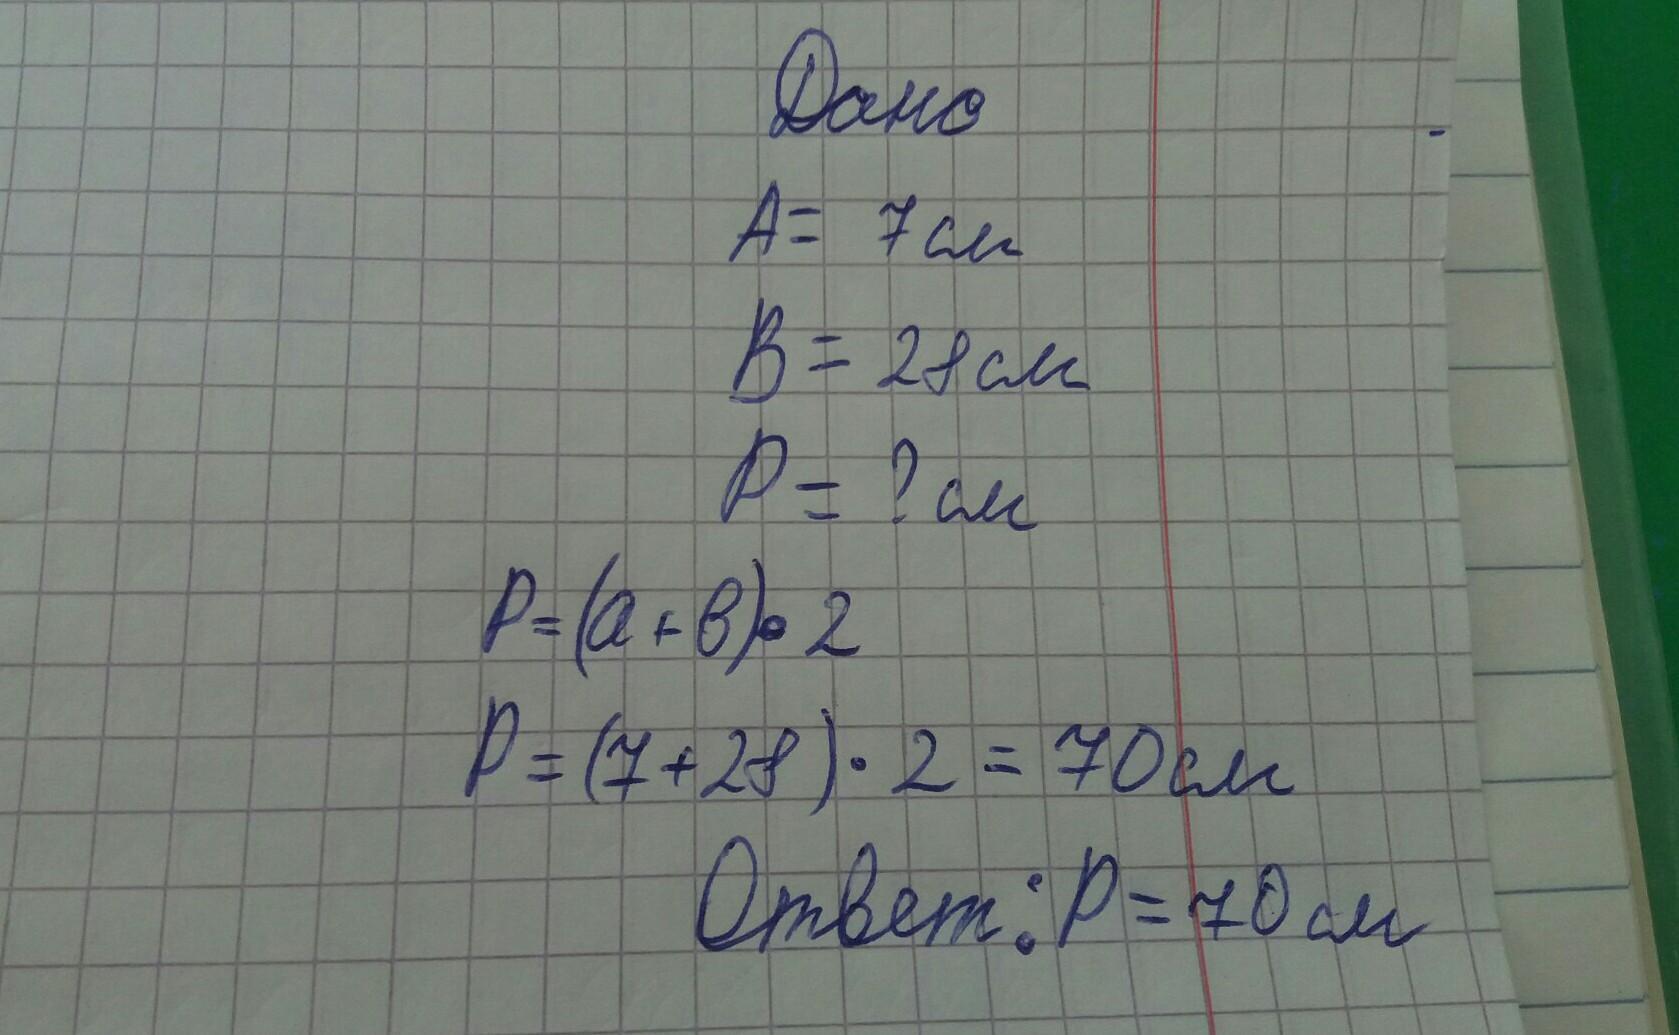 Дано
A= 7см
B= 28см
P= ?см
P=(a+в)•2
P=(7+28)·2=70см
Ответ: P=70см